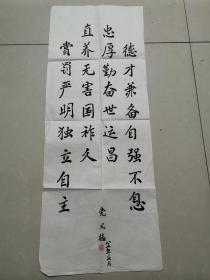 德才兼备自强不息
忠厚勤奋世运昌
直养无害国祚久
赏罚严明独立自主